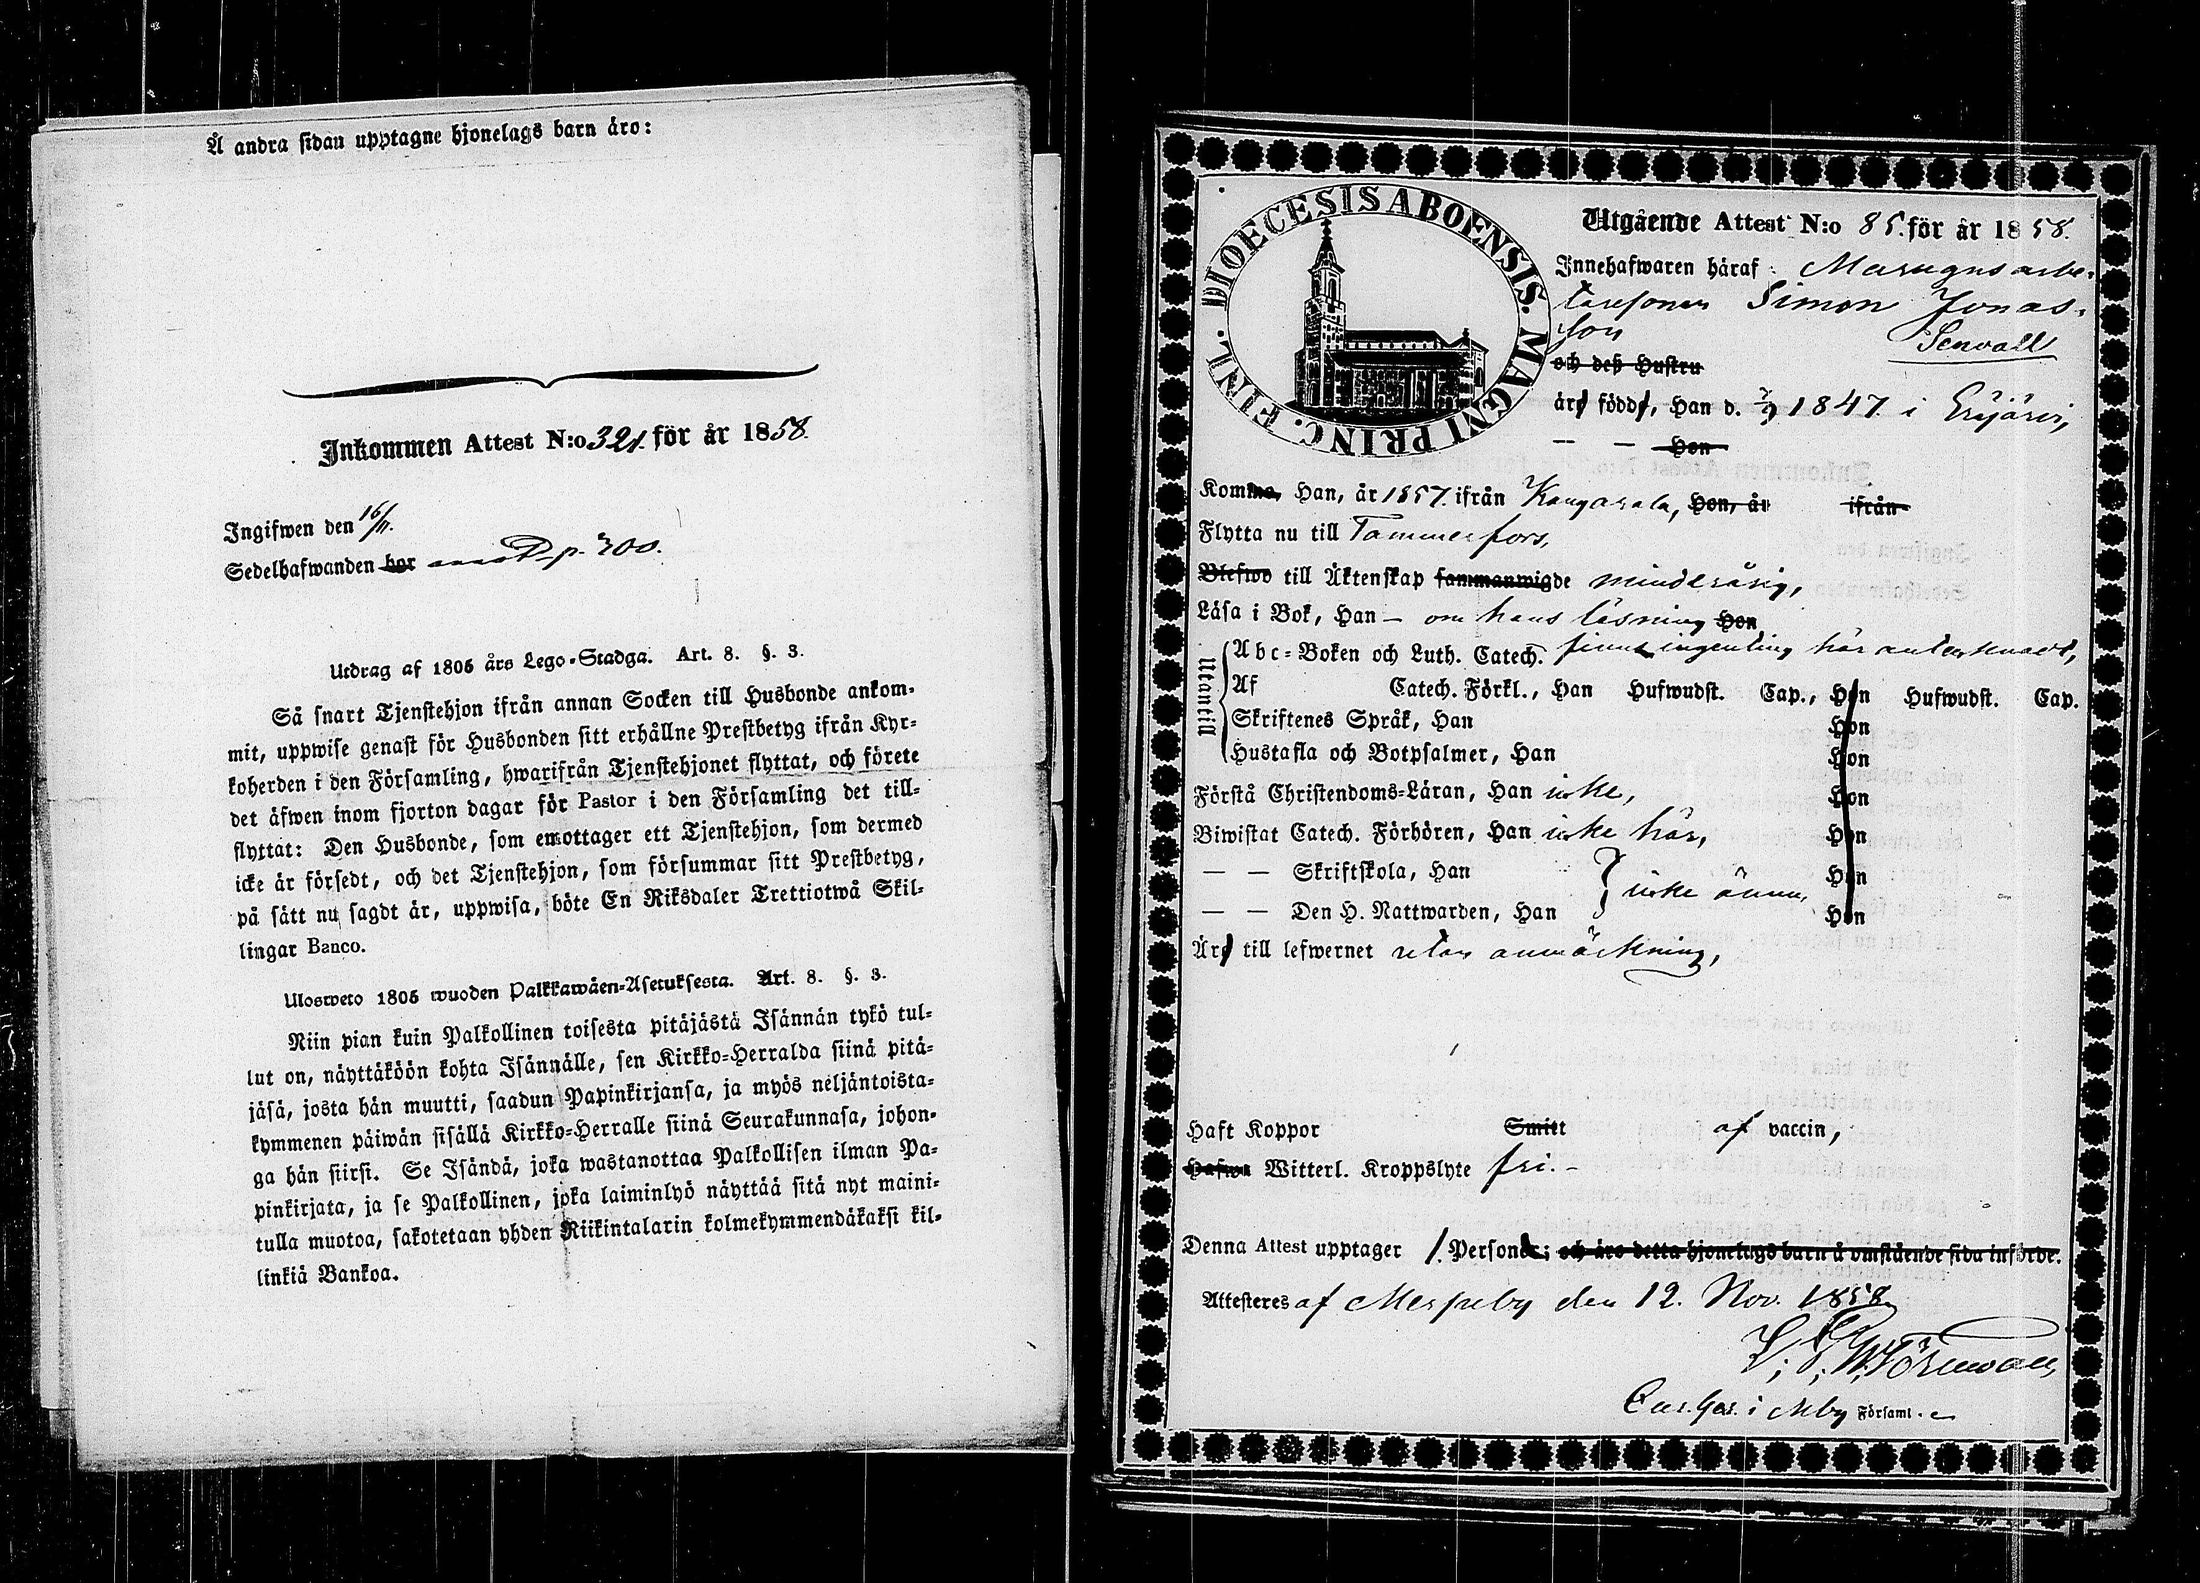 Å andra sidan upptagne hjonelags barn äro:
Inkommen Attest N:o 321. för år 1858.
Ingifwen den 16/11.
Sedelhafwanden bor p. 300.
Utdrag af 1805 års Lego-Stadga. Art. 8. §. 3.
Så snart Tjenstehjon ifrån annan Socken till Husbonde ankom-
mit, uppwise genast för Husbonden sitt erhållne Prestbetyg ifrån Kyr-
koherden i den Församling, hwarifrån Tjenstehjonet flyttat, och förete
det äfwen inom fjorton dagar för Pastor i den Församling det till-
flyttat: Den Husbonde, som emottager ett Tjenstehjon, som dermed
icke är försedt, och det Tjenstehjon, som försummar sitt Prestbetyg,
på sätt nu sagdt är, uppwisa, böte En Riksdaler Trettiotwå Skil-
lingar Banco.
Ulosweto 1805 wuoden Palkkawäen-Asetuksesta. Art. 8. §. 3.
Niin pian kuin Palkollinen toisesta pitäjästä Isännän tykö tul-
lut on, näyttäköön kohta Isännälle, sen Kirkko-Herralda siinä pitä-
jäsä, josta hän muutti, saadun Papinkirjansa, ja myös neljäntoista-
kymmenen päiwän sisällä Kirkko-Herralle siinä Seurakunnasa, johon-
ga hän siirsi. Se Isändä, joka wastanottaa Palkollisen ilman Pa-
pinkirjata, ja se Palkollinen, joka laiminlyö näyttää sitä nyt maini-
tulla muotoa, sakotetaan yhden Riikintalarin kolmekymmendäkaksi kil-
linkiä Bankoa.
DIOECESIS ABOENSIS. MAGNI PRINC. FINL.
Utgående Attest N:o 85. för år 1858.
Innehafwaren häraf: Masugnsarbe-
taresonen Simon Jonas-
son
Senvall
och deß Hustru
äro född, Han d. 7/9 1847. i Eräjärvi,
— — Hon
Komma, Han, år 1857. ifrån Kangasala, Hon, år ifrån
Flytta nu till Tammerfors,
Blefwo till Äktenskap sammanwigde minderårig,
Läsa i Bok, Han — om hans läsning Hon
Utantill
Abc-Boken och Luth. Catech. finns ingenting här antecknadt,
Af Catech. Förkl., Han Hufwudst. Cap., Hon Hufwudst. Cap.
Skriftenes Språk, Han Hon
Hustafla och Botpsalmer, Han Hon
Förstå Christendoms-Läran, Han icke, Hon
Biwistat Catech. Förhören, Han icke här, Hon
— — Skriftskola, Han Hon
icke ännu,
— — Den H. Nattwarden, Han Hon
Äro till lefwernet utan anmärkning,
Haft Koppor Smitt af vaccin,
Hafwa Witterl. Kroppslyte fri. -
Denna Attest upptager 1. Personer; och äro detta hjonelags barn å omstående sida införde.
Attesteres af Messuby den 12. Nov. 1858
Törnwall,
i Mby Församl.